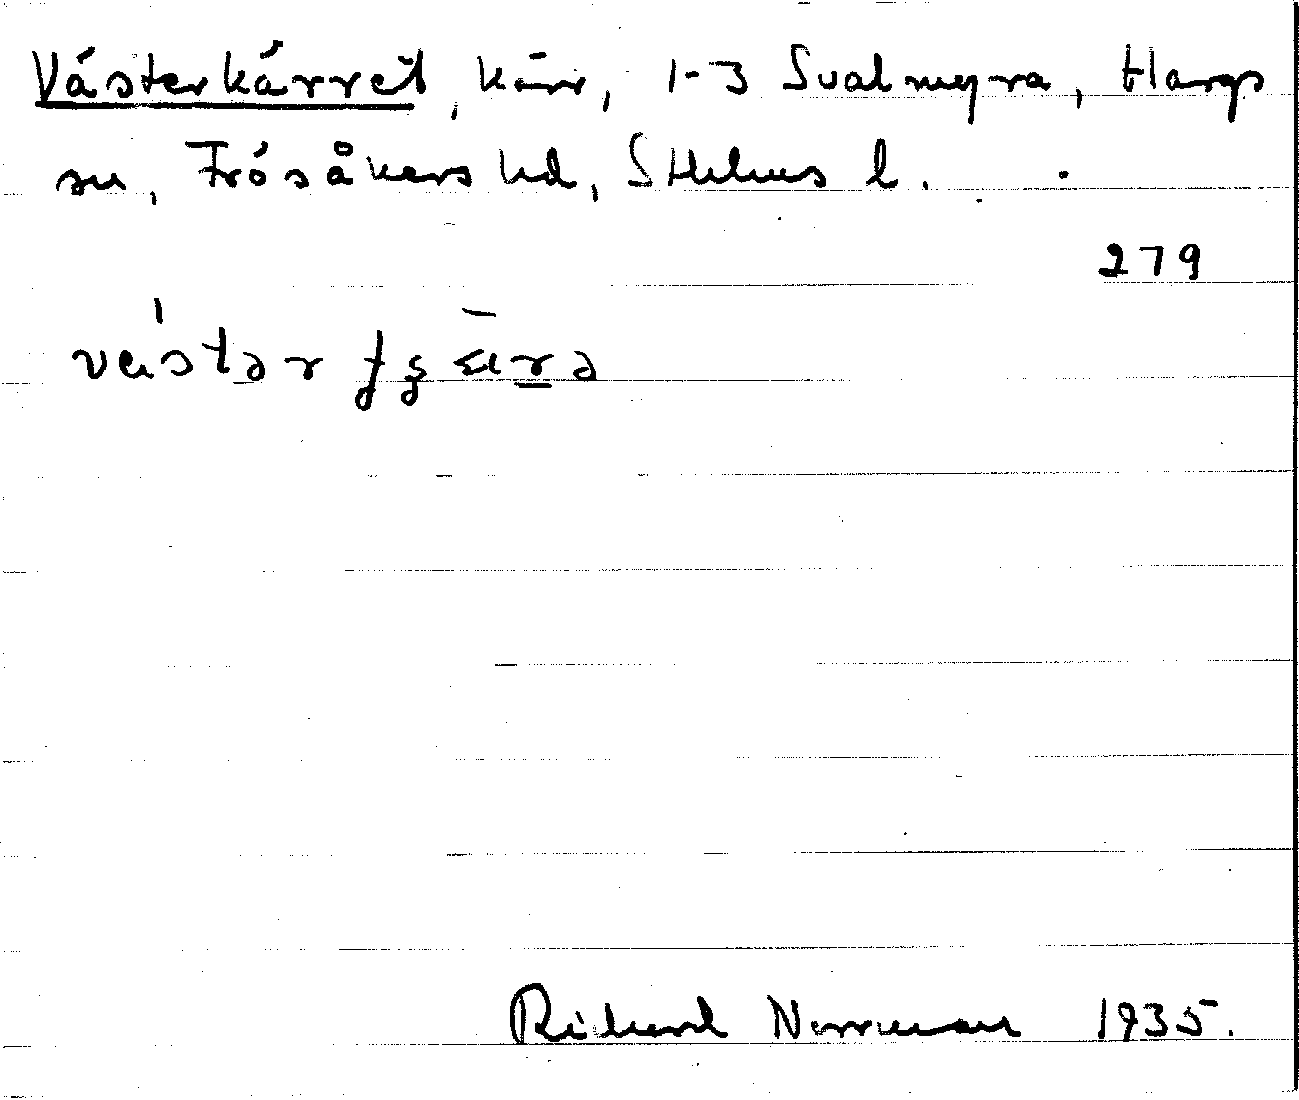 Västerkärret, kärr, 1-3 Svalmyra, Hargs
sn, Frösåkers hd, Sthlms l.
279
Richard Norrman 1935.